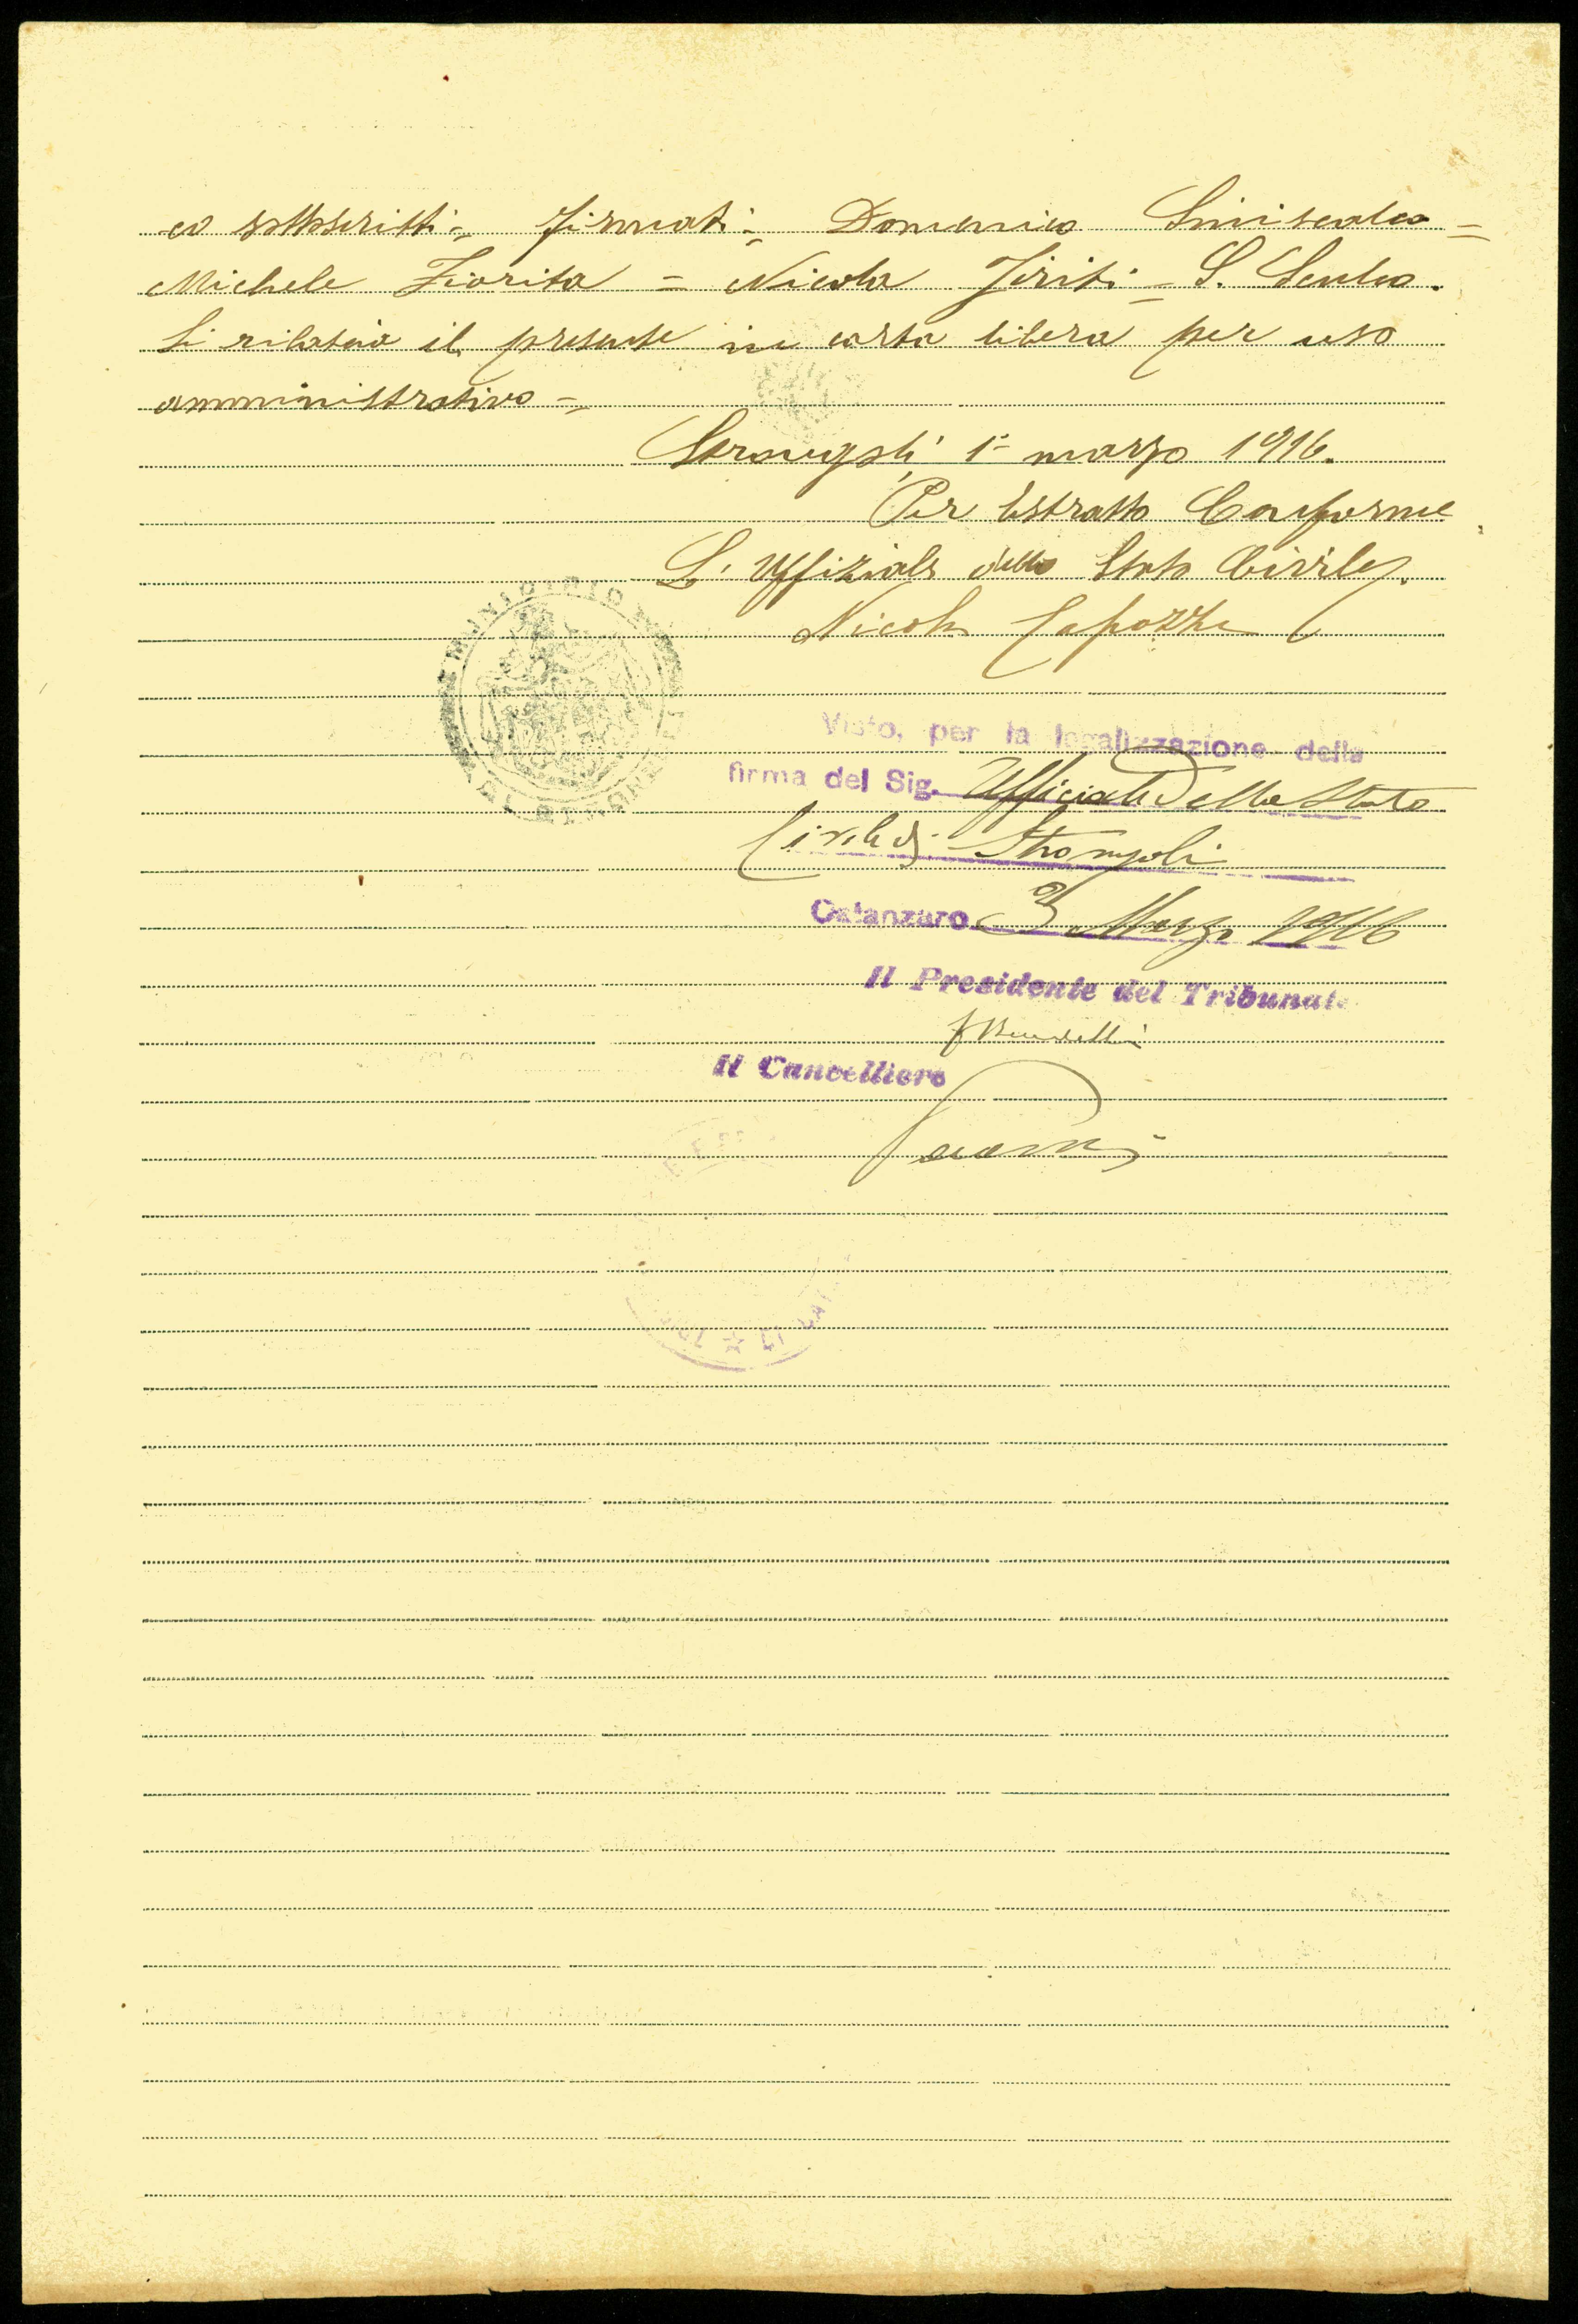 co sottoscritti = Firmati = Domenico Siniscalco =
Michele Fiorita = Nicola Jiriti = S. Scalco.
Si rilascia il presente in carta libera per uso
amministrativo =
Strongoli 1° marzo 1916.
Per Estratto Conforme
L'Uffiziale dello Stato Civile
Nicola Capozza
MUNICIPIO
DI STRONGOLI
Visto, per la legalizzazione della
firma del Sig. Ufficiale Dello Stato
Civile di Strongoli
Catanzaro 3 Marzo 1916
Il Presidente del Tribunale
Il Cancelliere